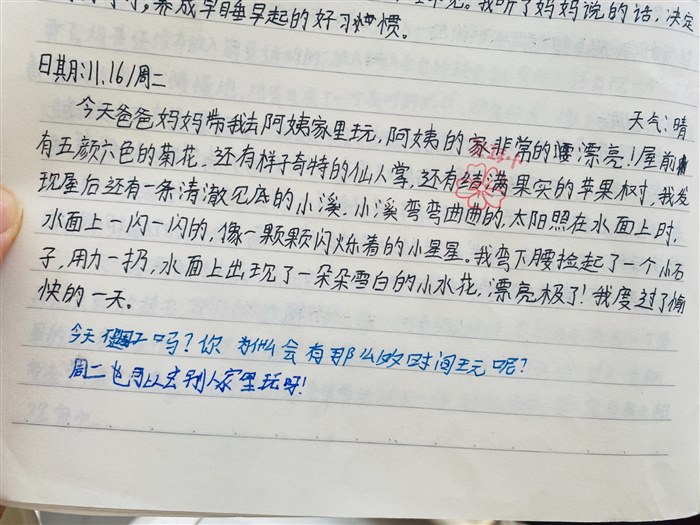 我听了妈妈说的话,决定
养成早睡早起的好习惯。
日期:11.16/周二
天气:晴
今天爸爸妈妈带我去阿姨家里玩,阿姨的家非常的漂亮!屋前
有五颜六色的菊花,还有样子奇特的仙人掌,还有结满果实的苹果树,我发
现屋后还有一条清澈见底的小溪.小溪弯弯曲曲的,太阳照在水面上时,
水面上一闪一闪的,像一颗颗闪烁着的小星星。我弯下腰捡起了一个小石
子,用力一扔,水面上出现了一朵朵雪白的小水花,漂亮极了!我度过了愉
快的一天。
今天 吗?你为什么会有那么 时间玩呢?
周二也可以去别人家里玩呀!